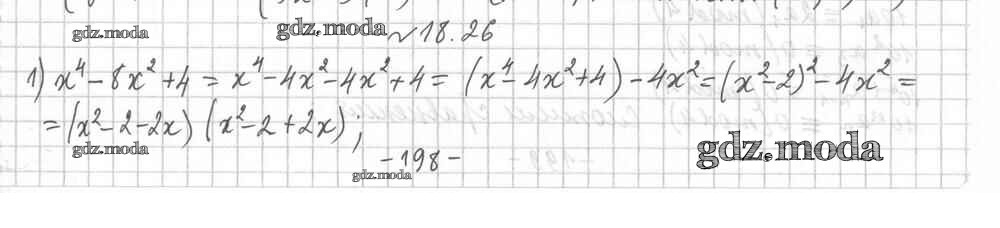 gdz.moda gdz.moda № 18.26
1) x⁴ - 8x² + 4 = x⁴ - 4x² - 4x² + 4 = (x⁴ - 4x² + 4) - 4x² = (x² - 2)² - 4x² =
= (x² - 2 - 2x) (x² - 2 + 2x) ;
gdz.moda
- 198 -
gdz.moda
gdz.moda